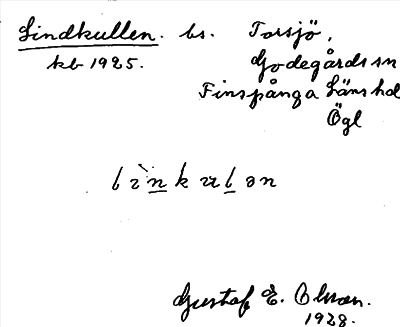 Lindkullen. bs. Torsjö,
kb 1925. Godegårds sn
Finspånga Läns hd
Ögl
Gustaf E. Olsson.
1928.